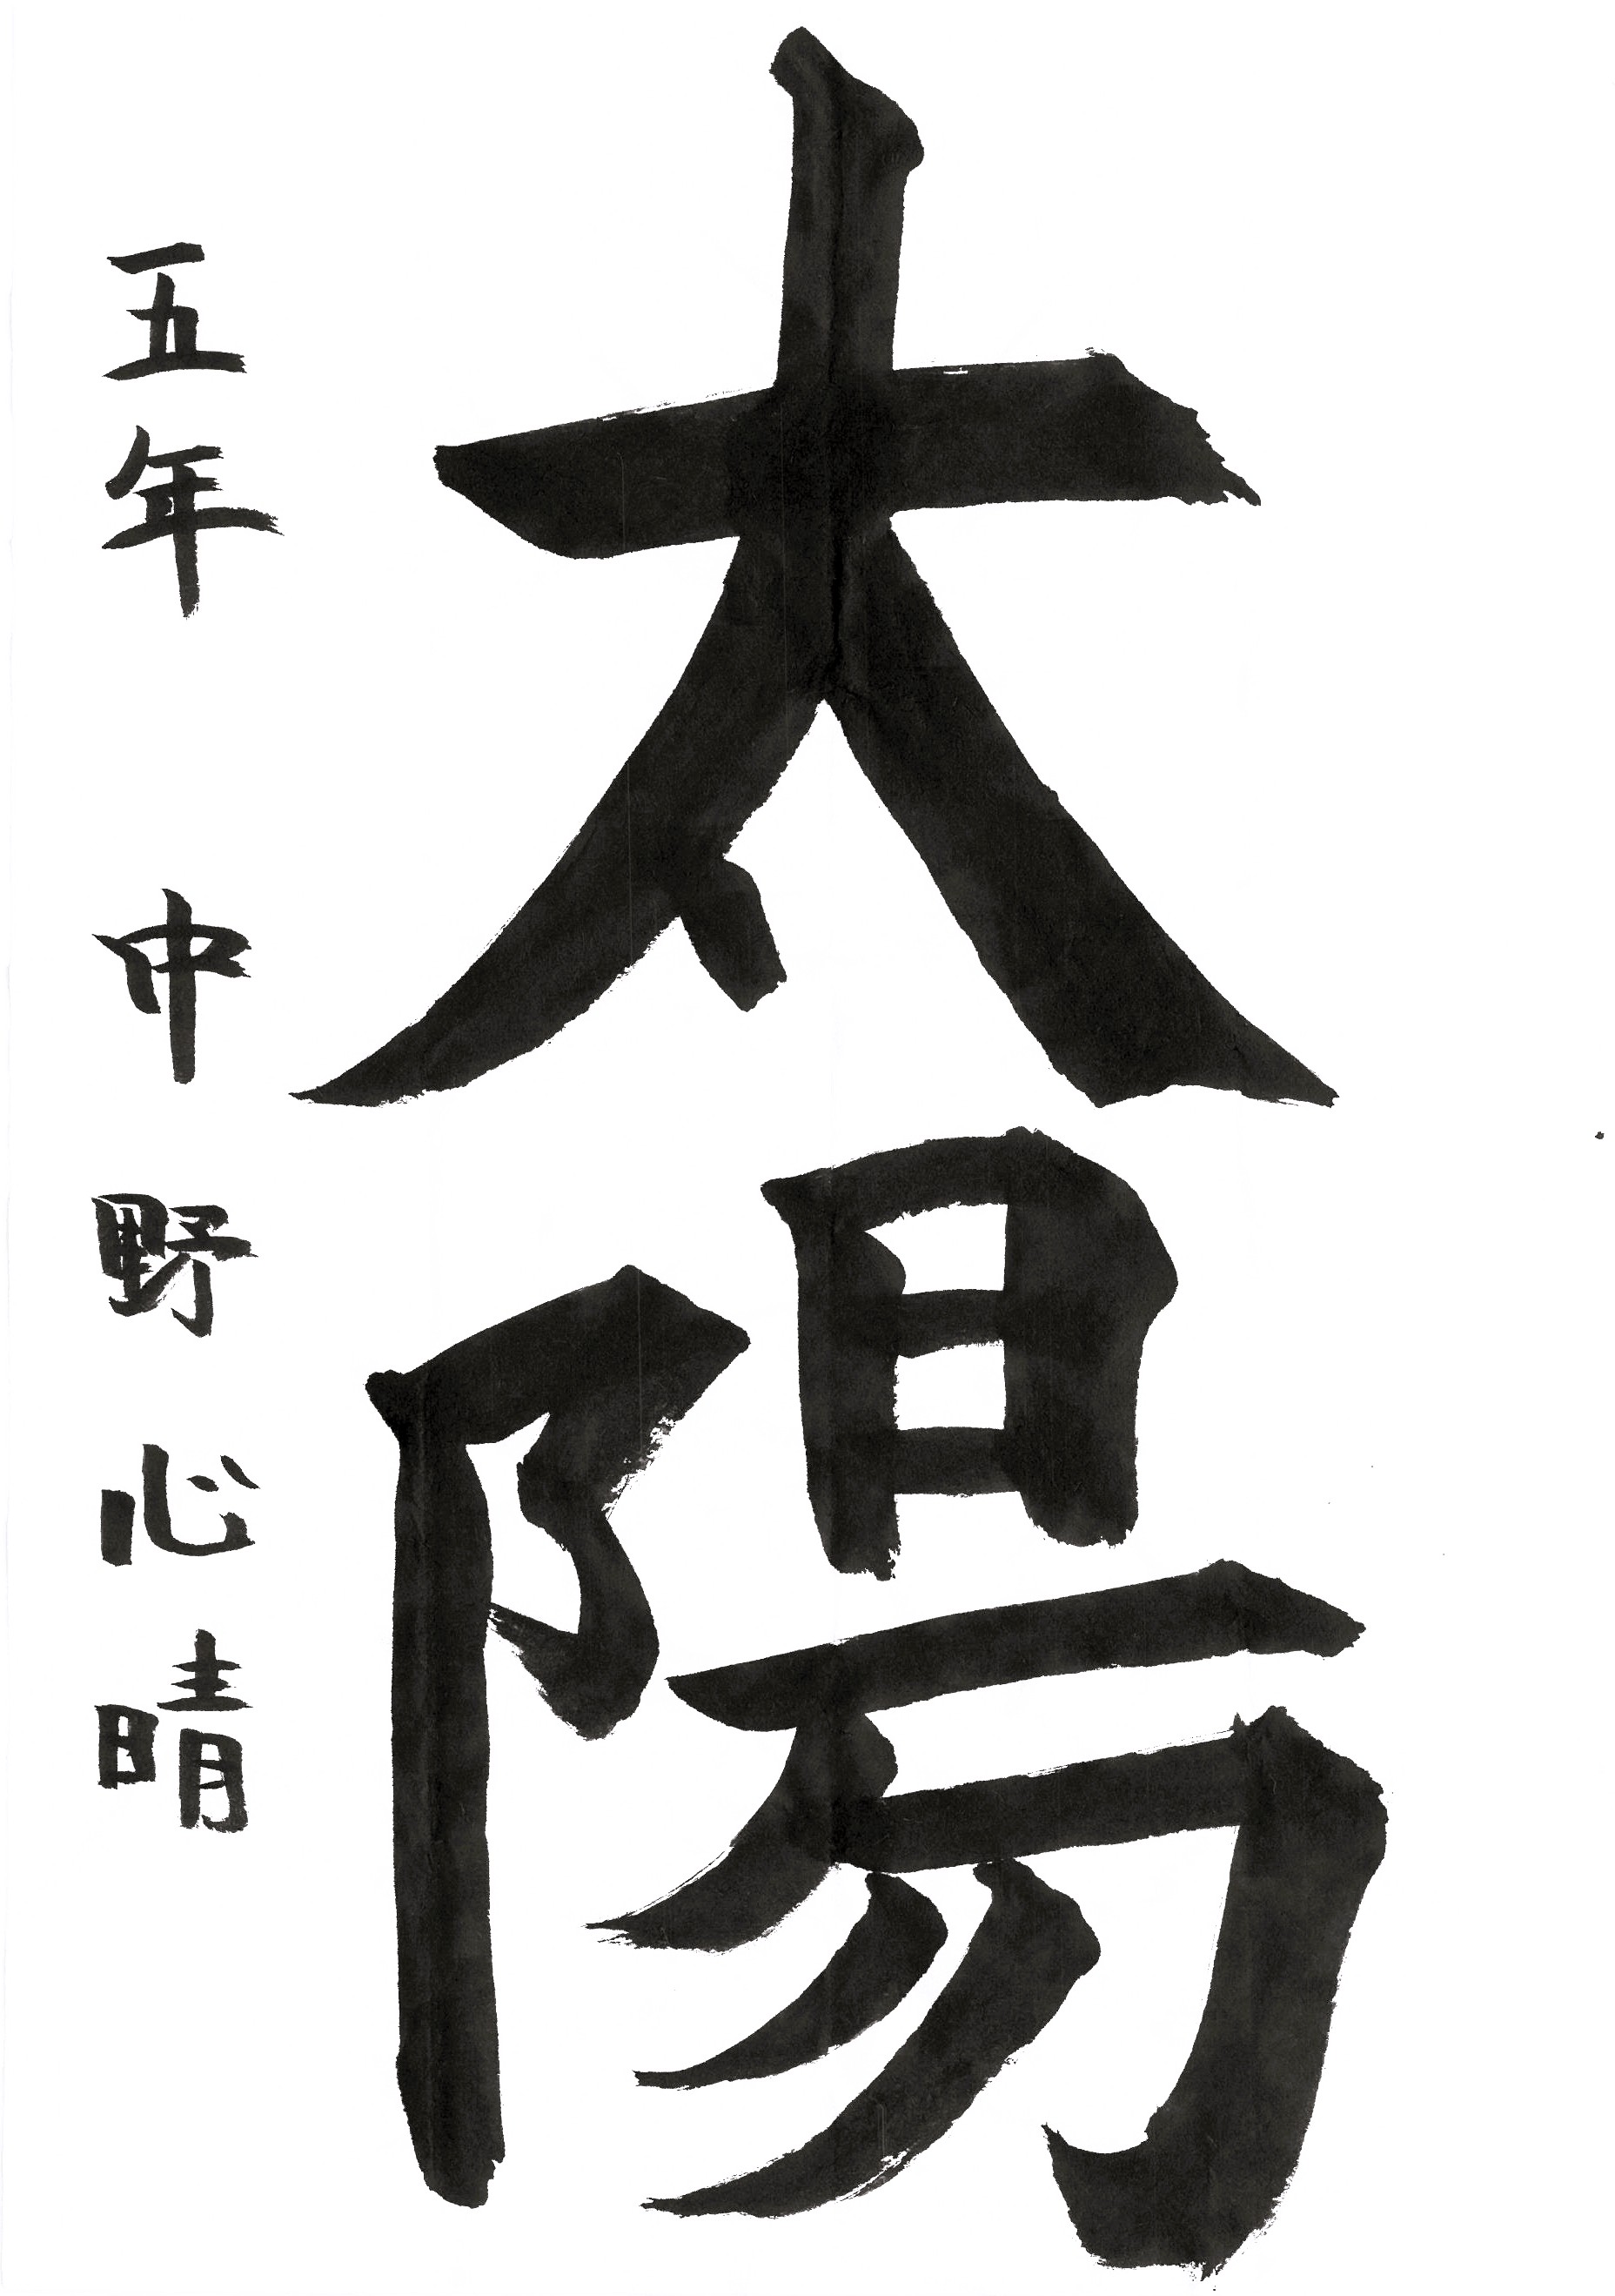 太陽
五年 中野心晴